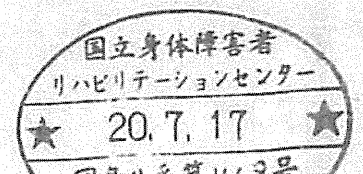 国立身体障害者
リハビリテーションセンター
★ 20.7.17 ★